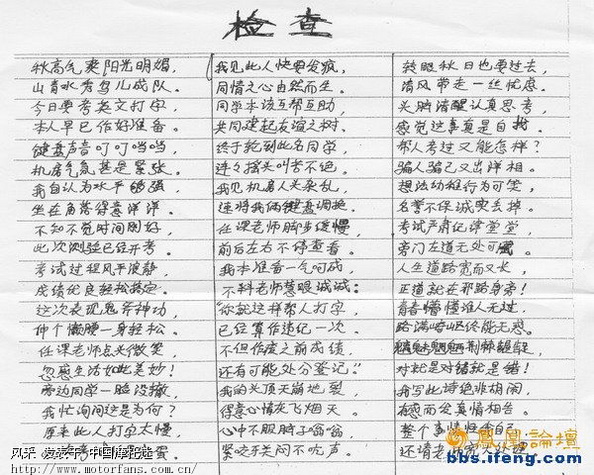 检查
秋高气爽阳光明媚,
山青水秀鸟儿成队。
今日要考英文打字,
本人早已作好准备。
键盘声音叮叮当当,
机房气氛甚是紧张。
我自认为水平够强,
坐在角落得意洋洋。
不知不觉时间刚好,
此次测验已经开考。
考试过程风平浪静,
成绩优良轻松搞定。
这次表现鬼斧神功,
伸个懒腰一身轻松。
任课老师点头微笑,
忽感生活如此美妙!
旁边同学一脸没辙,
我忙询问这是为何?
原来此人打字太慢,
蛋。
我见此人快要发疯,
同情之心由然而生。
同学本该互帮互助,
共同建起友谊之树。
终于轮到此名同学,
连连摇头叫苦不绝。
我见机房人头杂乱,
速将我俩键盘调换。
任课老师脚步缓慢,
前后左右不停查看。
我本准备一气呵成,
不料老师慧眼诚诚:
"你就这样帮人打字,
已经算作违纪一次。
不但作废之前成绩,
还有可能处分登记."
我的头顶天崩地裂,
得意心情灰飞烟灭。
心中不服脑子嗡嗡,
紧咬牙关不吭声。
转眼秋日也要过去,
清风带走一丝忧虑。
头脑清醒认真思考,
感觉这真真是自找。
帮人考过又能怎样?
骗人骗己又出洋相。
想法幼稚行为可笑,
名誉不保诚实丢掉。
考试严肃纪律堂堂,
旁门左道无处可藏。
人生道路宽而又长,
正道就在那路身旁!
青春懵懂谁人无过,
路满崎岖终能无恐。
荆棘
对就是对错就是错!
我写此诗绝非胡闹,
有感而发真情相告。
整个事情怪自己
还请老师
凤凰论坛
bbs.ifeng.com
风子 发表于 中国摩托迷
www.motorfans.com.cn